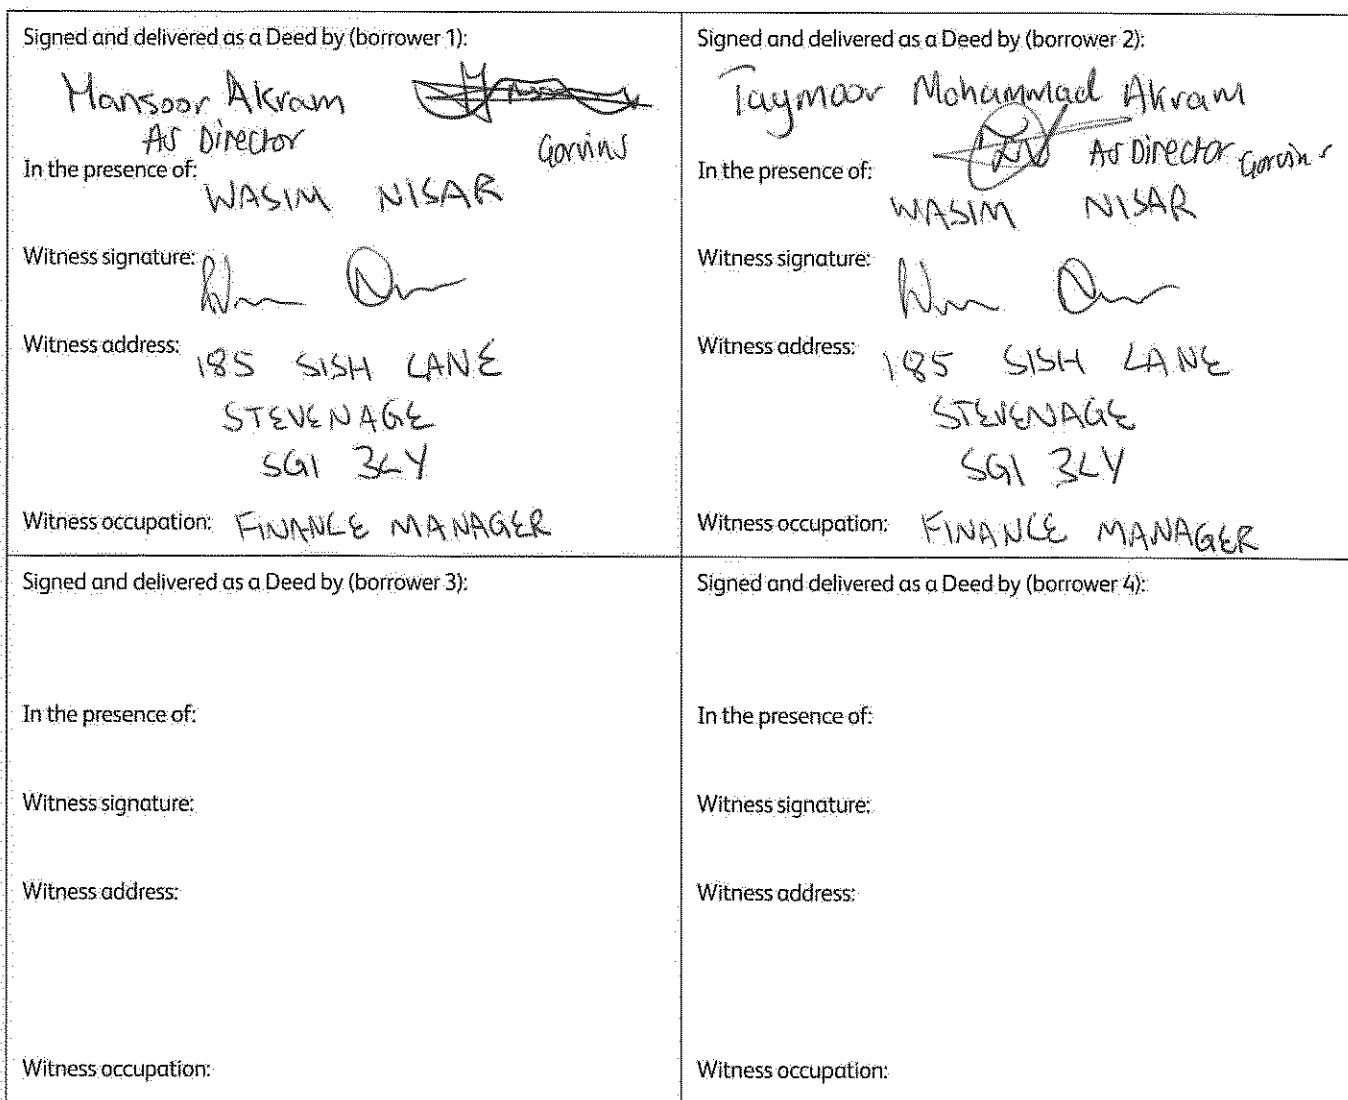 Signed and delivered as a Deed by (borrower 1):
Mansoor Akram
As Director
Gorvins
In the presence of:
WASIM NISAR
Witness signature:
Witness address:
185 SISH LANE
STEVENAGE
SG1 3LY
Witness occupation: FINANCE MANAGER
Signed and delivered as a Deed by (borrower 2):
Taymoor Mohammad Akram
As Director Gorvins
In the presence of:
WASIM NISAR
Witness signature:
Witness address:
185 SISH LANE
STEVENAGE
SG1 3LY
Witness occupation: FINANCE MANAGER
Signed and delivered as a Deed by (borrower 3):
In the presence of:
Witness signature:
Witness address:
Witness occupation:
Signed and delivered as a Deed by (borrower 4):
In the presence of:
Witness signature:
Witness address:
Witness occupation: